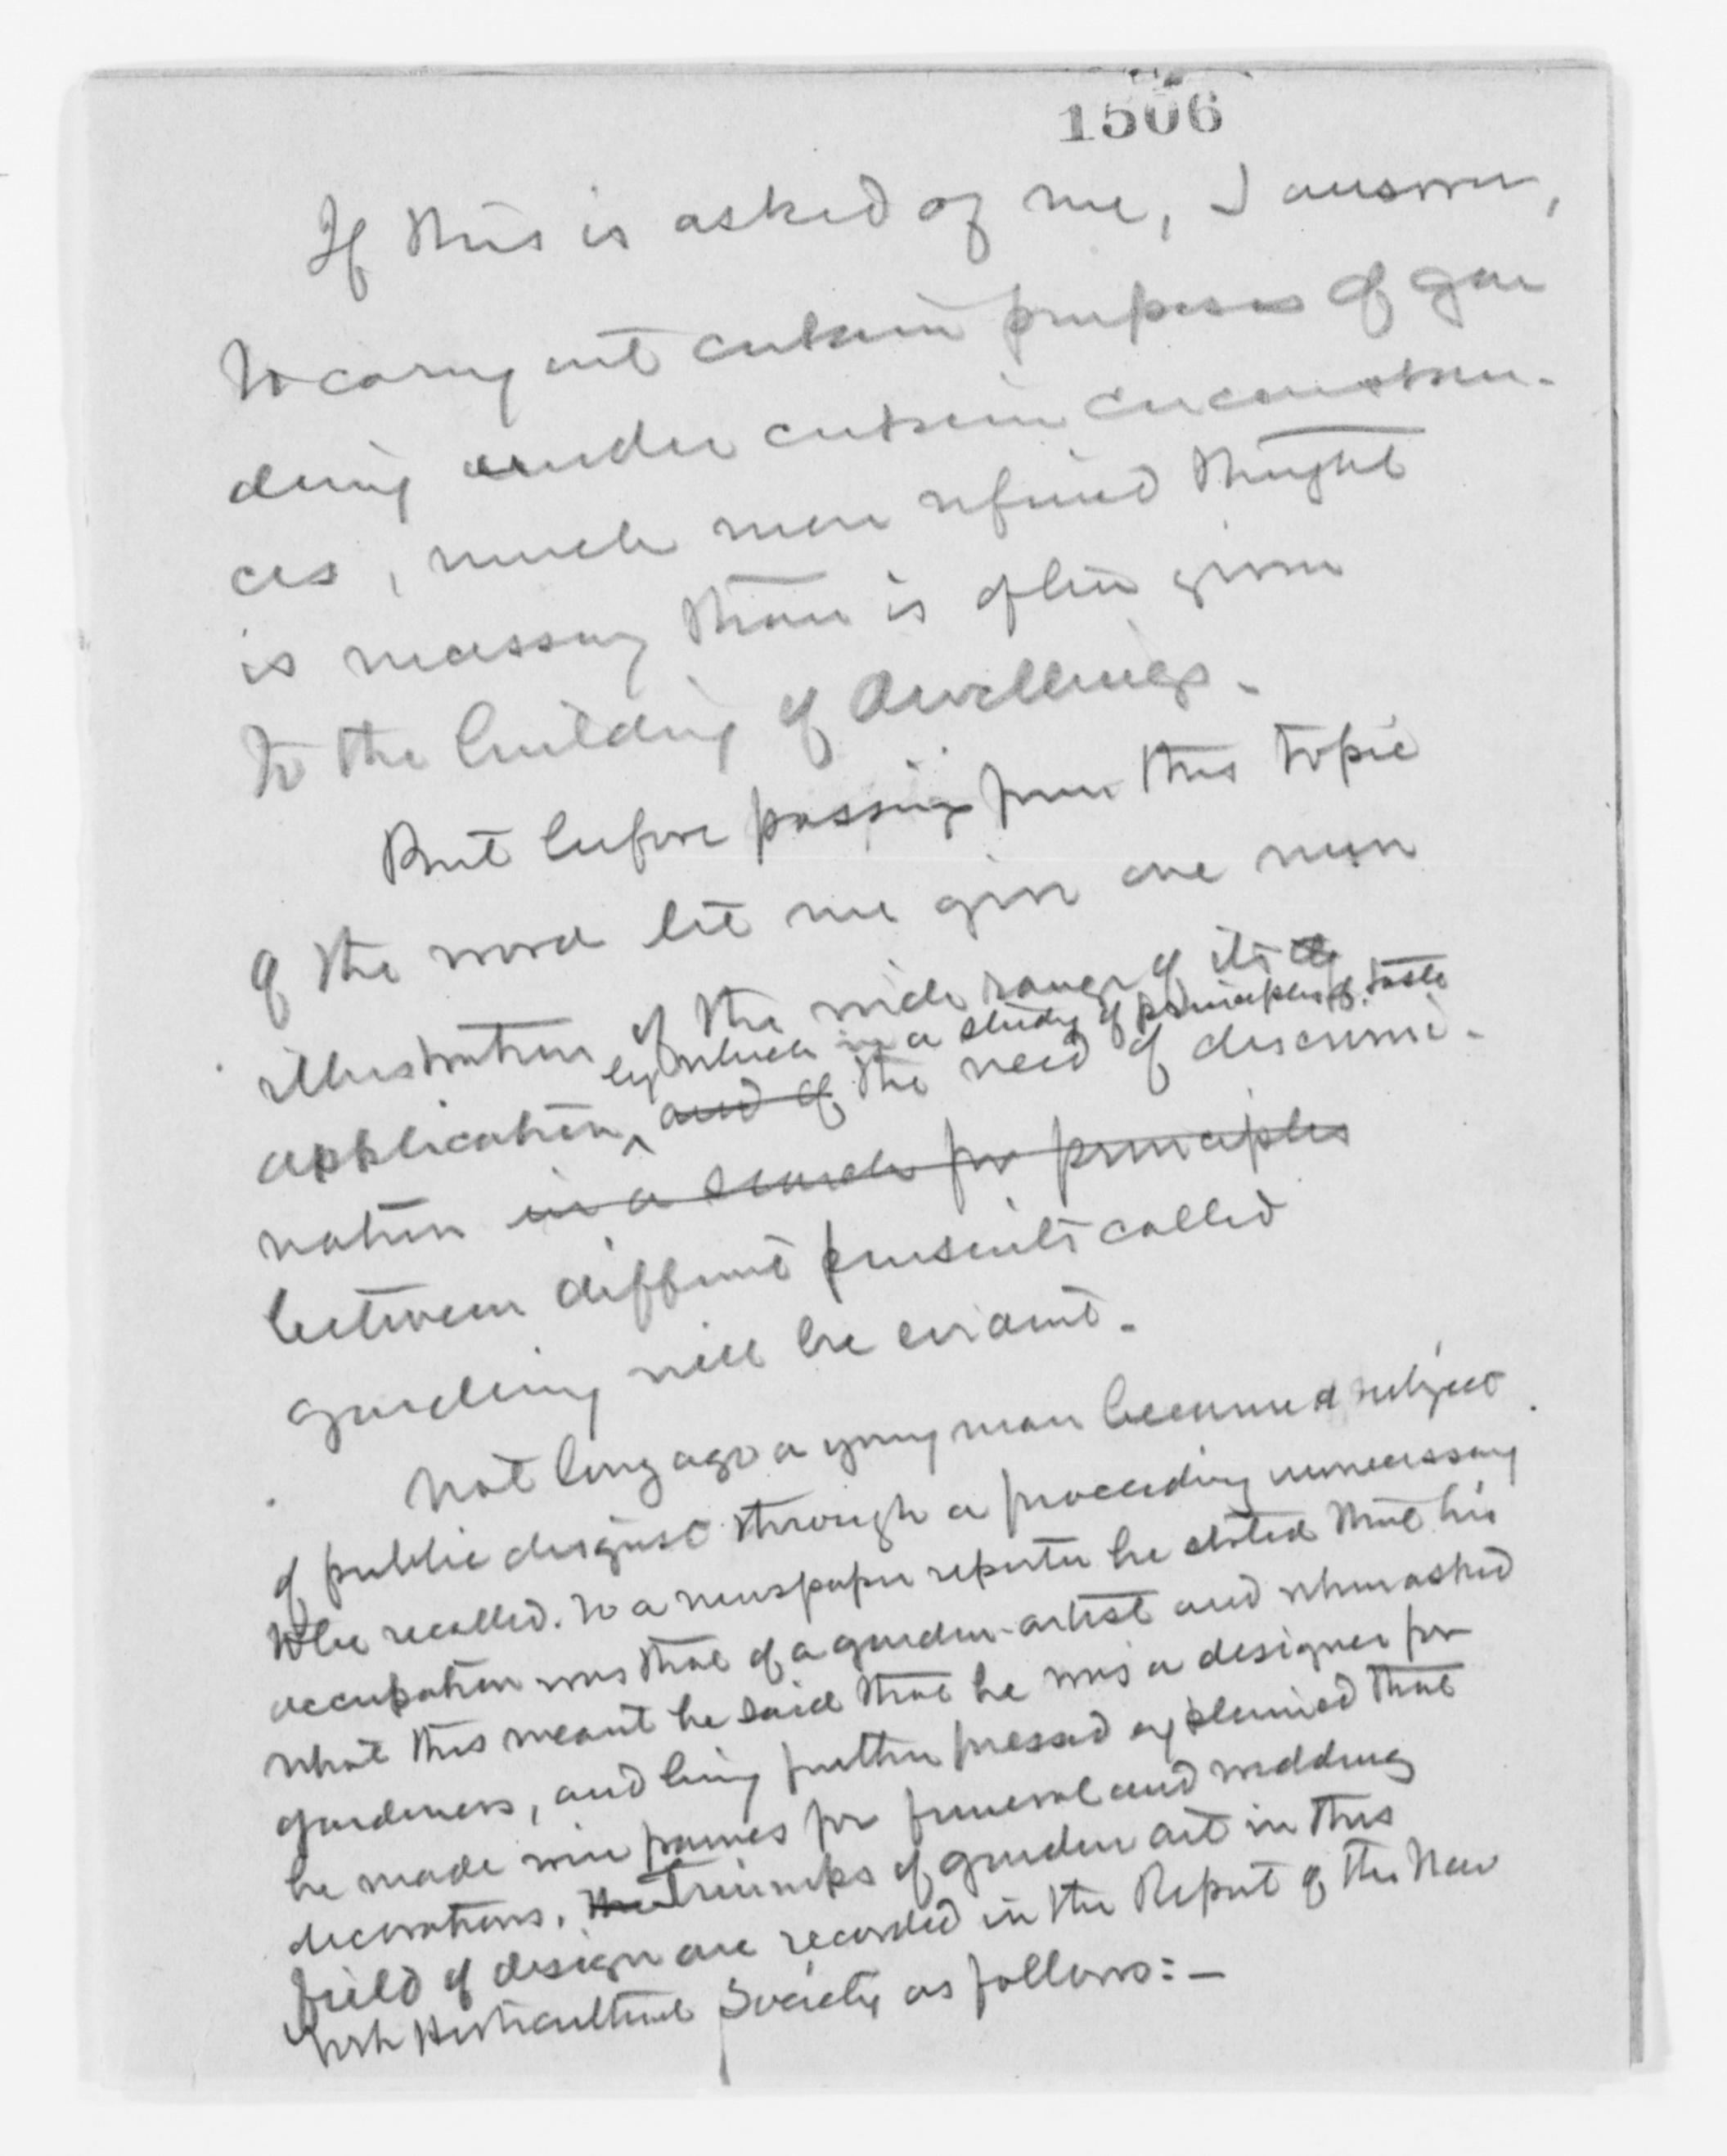 1506
If this is asked of me, I answer,
to carry out certain purposes of gar
dening under certain circumstan-
ces, much more refined thought
is necessary than is often given
to the building of dwellings.
But before passing from this topic
of the word let me give one more
illustration of the wide range of its
by which in a study of principles of taste
application, and of the need of discrimi-
nation in a search for principles
between different pursuits called
gardening will be evident.
Not long ago a young man became a subject
of public disgust through a proceeding unnecessary
to be recalled. To a newspaper reporter he stated that his
occupation was that of a garden-artist and when asked
what this meant he said that he was a designer for
gardeners, and being further pressed explained that
he made wire frames for funeral and wedding
decorations. The Triumphs of garden art in this
field of design are recorded in the Report of the New
York Horticultural Society as follows:-